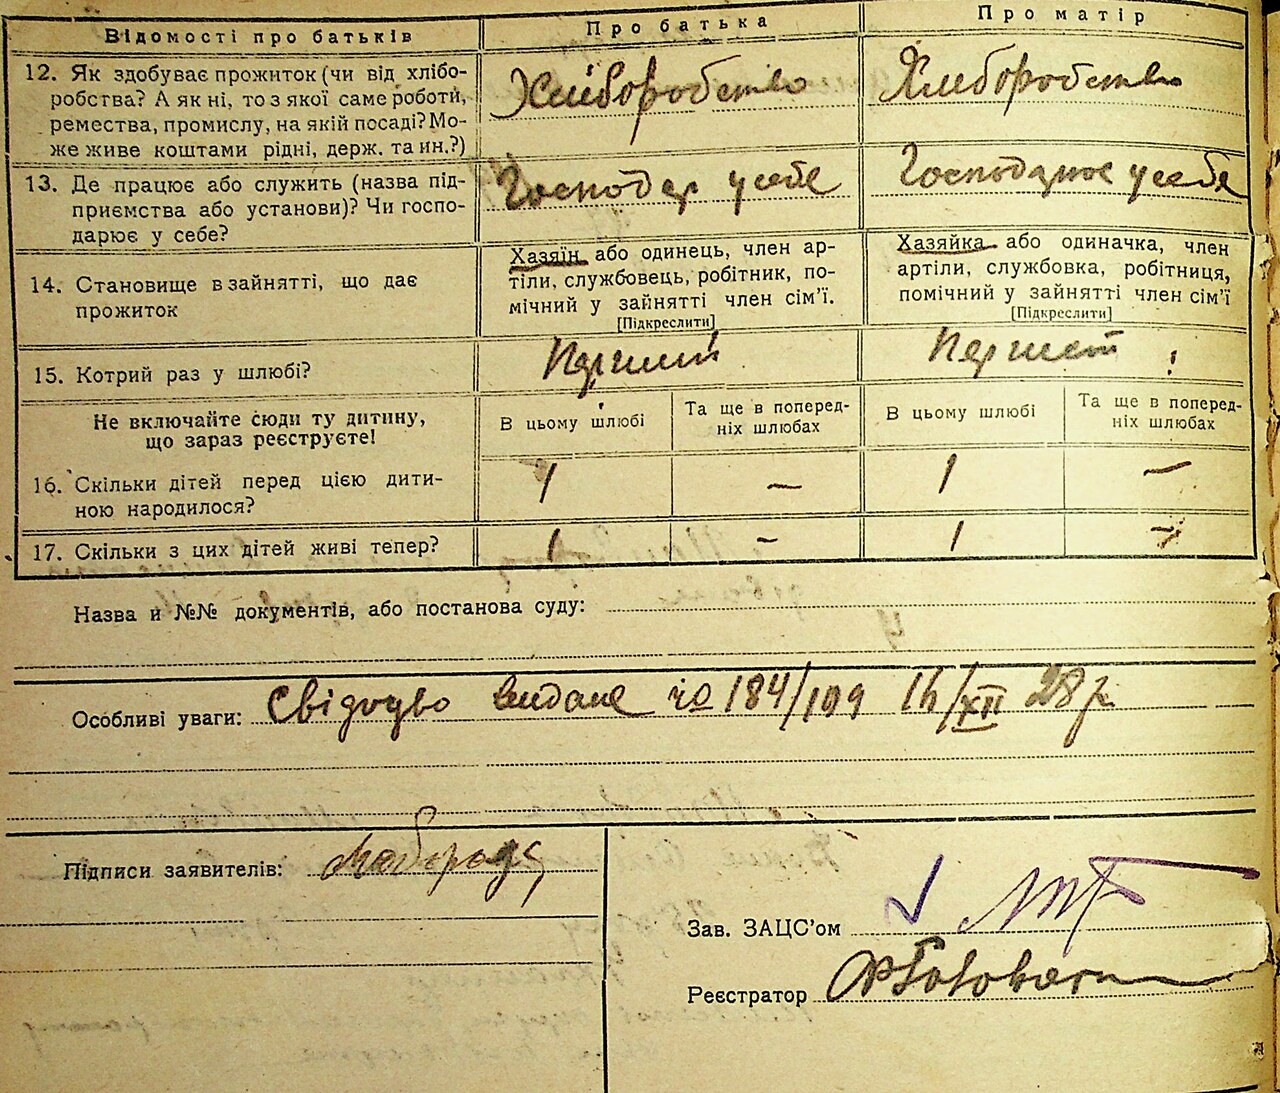 Відомості про батьків
Про батька
Про матір
12. Як здобуває прожиток (чи від хлібо-
робства? А як ні, то з якої саме роботи,
ремества, промислу, на якій посаді? Мо-
же живе коштами рідні, держ. та ин.?)
Хліборобство
Хліборобство
13. Де працює або служить (назва під-
приємства або установи)? Чи госпо-
дарює у себе?
Господар у себе
у себе
14. Становище в зайнятті, що дає
прожиток
Хазяїн або одинець, член ар-
тіли, службовець, робітник, по-
мічний у зайнятті член сім’ї.
[Підкреслити]
Хазяйка або одиначка, член
артіли, службовка, робітниця,
помічний у зайнятті член сім’ї
[Підкреслити]
15. Котрий раз у шлюбі?
Перший
Не включайте сюди ту дитину,
що зараз реєструєте!
В цьому шлюбі
Та ще в поперед-
ніх шлюбах
В цьому шлюбі
Та ще в поперед-
ніх шлюбах
16. Скільки дітей перед цією дити-
ною народилося?
1 — 1 —
17. Скільки з цих дітей живі тепер?
1 — 1 —
Назва й №№ документів, або постанова суду:
Особливі уваги: Свідоцво видане чо 184/109 16/XII 28 р.
Підписи заявителів:
Зав. ЗАЦС’ом
Реєстратор